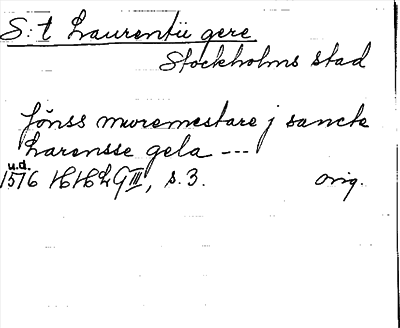 S:t Laurentii gere
Stockholms stad
Jönss muremestare j sancte
Larensse gela ---
u.d.
1576 HHL G III, s. 3. orig.